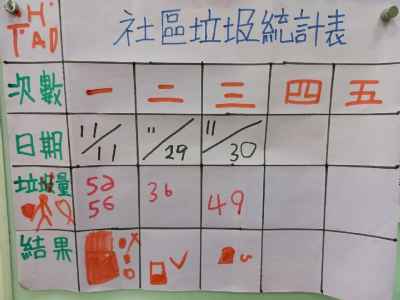 H
TAD
社區垃圾統計表
次數 一 二 三 四 五
日期 11/11 11/29 11/30
垃圾量 52 36 49
56
結果